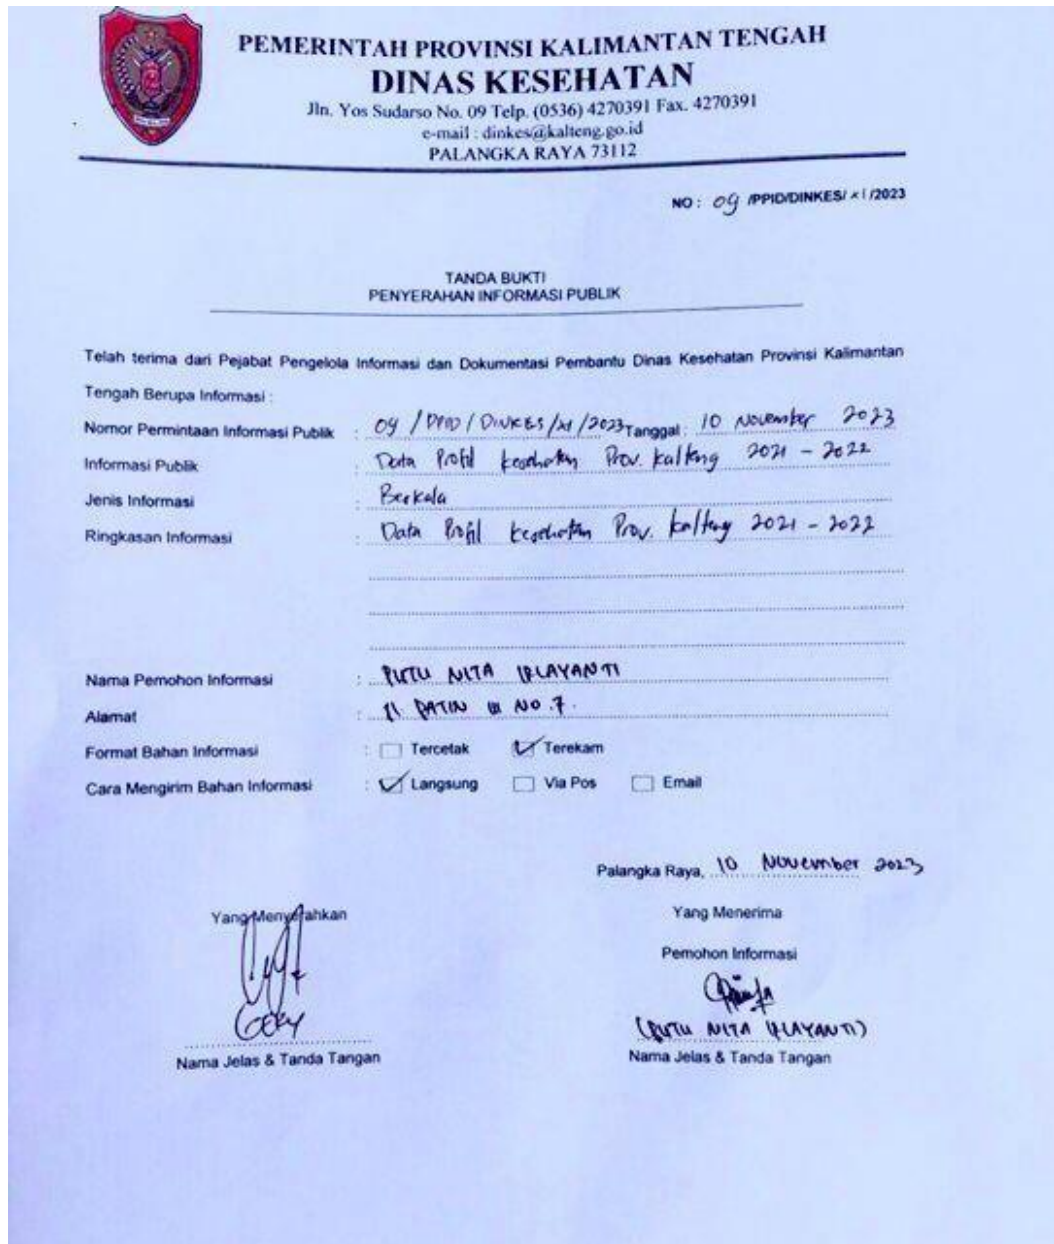 PEMERINTAH PROVINSI KALIMANTAN TENGAH
DINAS KESEHATAN
Jln. Yos Sudarso No. 09 Telp. (0536) 4270391 Fax. 4270391
e-mail : dinkes@kalteng.go.id
PALANGKA RAYA 73112
NO : 09 /PPID/DINKES/ XI /2023
TANDA BUKTI
PENYERAHAN INFORMASI PUBLIK
Telah terima dari Pejabat Pengelola Informasi dan Dokumentasi Pembantu Dinas Kesehatan Provinsi Kalimantan
Tengah Berupa Informasi :
Nomor Permintaan Informasi Publik : 09 / PPID / DINKES / XI / 2023 Tanggal : 10 November 2023
Informasi Publik : Data Profil kesehatan Prov. kalteng 2021 - 2022
Jenis Informasi : Berkala
Ringkasan Informasi : Data Profil kesehatan Prov. kalteng 2021 - 2022
Nama Pemohon Informasi : PUTU NITA
Alamat : Jl PATIN III NO. 7.
Format Bahan Informasi : Tercetak Terekam
Cara Mengirim Bahan Informasi : Langsung Via Pos Email
Palangka Raya, 10 November 2023
Yang Menyerahkan Yang Menerima
Pemohon Informasi
(PUTU NITA
Nama Jelas & Tanda Tangan Nama Jelas & Tanda Tangan